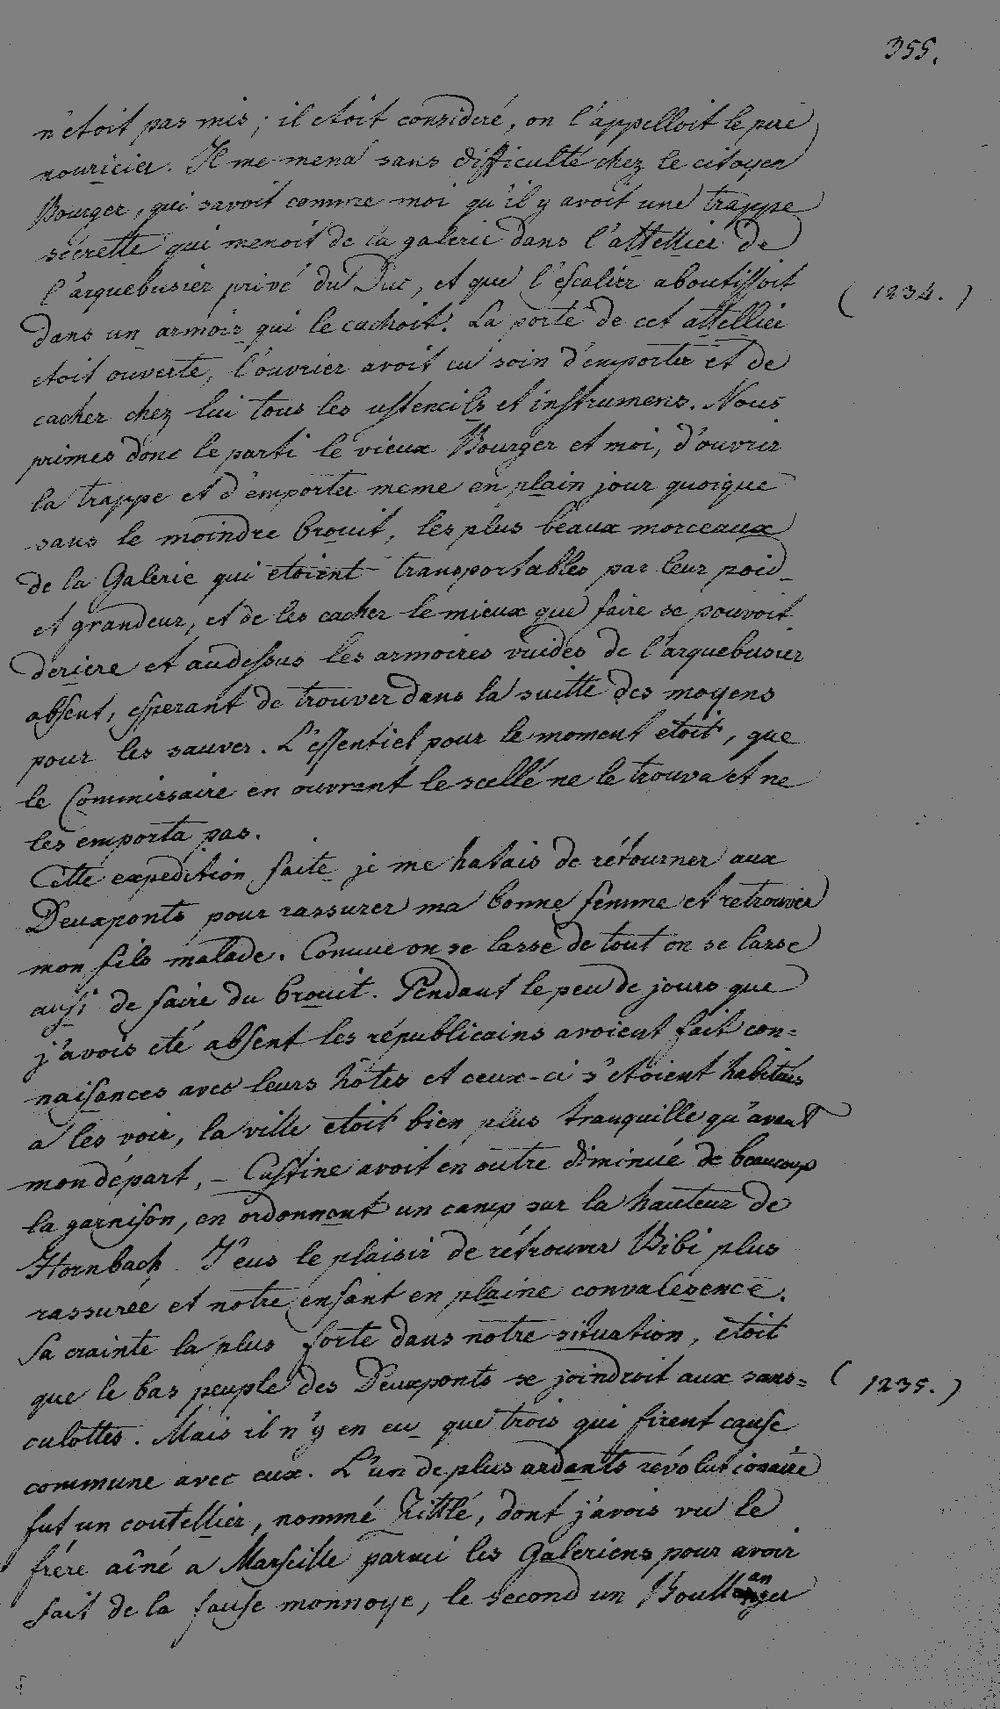 355.
n'étoit pas mis; il etoit consideré, on l'appelloit le pere
nouricier. Il me mena sans difficulté chez le citoyen
Bourger, qui savoit comme moi qu'il y avoit une trappe
sécrette qui menoit de la galerie dans l'attellier de
l'arquebusier privé du Duc, et que l'escalier aboutissoit
(1234.)
dans un armoir qui le cachoit. La porte de cet attellier
etoit ouverte, l'ouvrier avoit eu soin d'emporter et de
cacher chez lui tous les ustencils et instrumens. Nous
primes donc le parti le vieux Bourger et moi, d'ouvrir
la trappe et d'emporter meme en plain jour quoique
sans le moindre brouit, les plus beaux morceaux
de la Galerie qui etoient transportables par leur poid
et grandeur, et de les cacher le mieux que faire se pouvoit
deriere et audessus les armoires vuides de l'arquebusier
absent, esperant de trouver dans la suitte des moyens
pour les sauver. L'essentiel pour le moment etoit, que
le Commissaire en ouvrant le scellé ne le trouva et ne
les emporta pas.
Cette expedition faite je me hatais de rétourner aux
Deuxponts pour rassurer ma bonne femme et retrouver
mon fils malade. Comme on se lasse de tout on se lasse
ausi de faire du brouit. Pendant le peu de jours que
j'avois eté absent les républicains avoient fait con=
naisances avec leurs hôtes et ceux-ci s'etoient habitués
a les voir, la ville etoit bien plus tranquille qu'avant
mon départ, – Custine avoit en outre diminué de beaucoup
la garnison, en ordonnant un camp sur la hauteur de
Hornbach. J'eus le plaisir de rétrouver Bibi plus
rassurée et notre enfant en plaine convalesence.
Sa crainte la plus forte dans notre situation, etoit
que le bas peuple des Deuxponts se joindroit aux sans=
(1235.)
culottes. Mais il n'y en eu que trois qui firent cause
commune avec eux. L'un de plus ardants révolutionaire
fut un coutellier, nommé Zittlé, dont j'avois vu le
frére aîné a Marseille parmi les Galeriens pour avoir
fait de la fause monnoye, le second un Boullanger